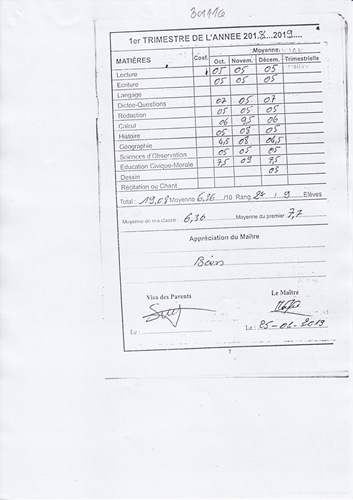 1er TRIMESTRE DE L'ANNEE 2018...2019....
MATIÈRES Coef. Moyenne
Oct. Novem. Décem. Trimestrielle
Lecture 05 05 05
Ecriture 05 05 05
Langage
Dictée-Questions 07 05 07
Rédaction 05 05 05
Calcul 06 95 06
Histoire 05 08 05
Géographie 4,5 08 04,5
Sciences d'Observation 05 05 05
Education Civique-Morale 7,5 09 7,5
Dessin 05
Récitation ou Chant
Total : 19,08 Moyenne 6,36 /10 Rang 2e / 9 Elèves
Moyenne de ma classe : 6,36 Moyenne du premier 7,7
Appréciation du Maître
Bien
Visa des Parents Le Maître
Le : Le : 25-01-2019
7